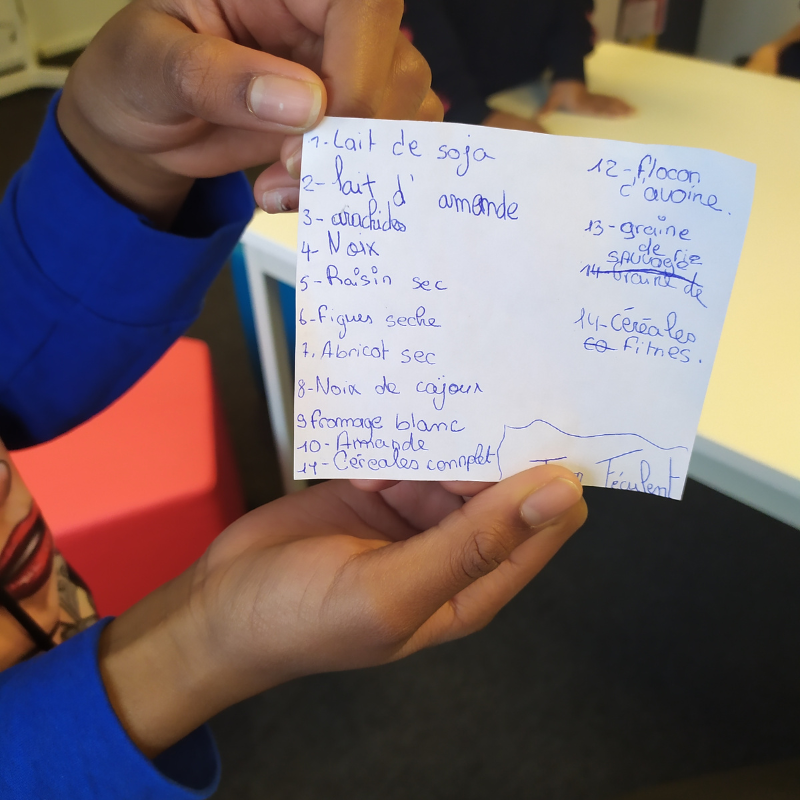 1- Lait de soja
2- lait d' amande
3- arachides
4- Noix
5- Raisin sec
6- figues seche
7. Abricot sec
8- Noix de cajoux
9 fromage blanc
10- Amande
11- Céreales connplet
12- flocon
d'avoine.
13- graine
de riz
sauvage
14- Graine de
14- Céréales
fitnes.
Féculent